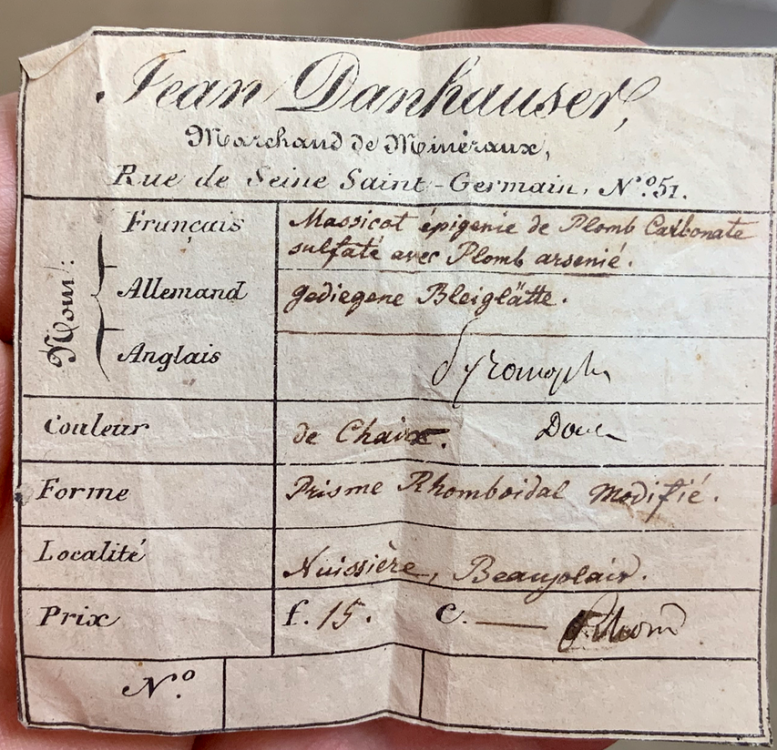 Jean Danhauser,
Marchand de Minéraux,
Rue de Seine Saint-Germain, N.º 51.
Nom:
Français Massicot épigenie de Plomb Carbonate
sulfaté avec Plomb arsenié.
Allemand gediegene Bleiglätte.
Anglais
Couleur de Chaux.
Forme Prisme Rhomboidal Modifié.
Localité Nuissière, Beaujolais.
Prix f. 15. c. —
N.º